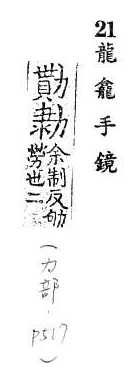 21 龍龕手鏡
勩
余制反劬
勞也二
(力部·P517)